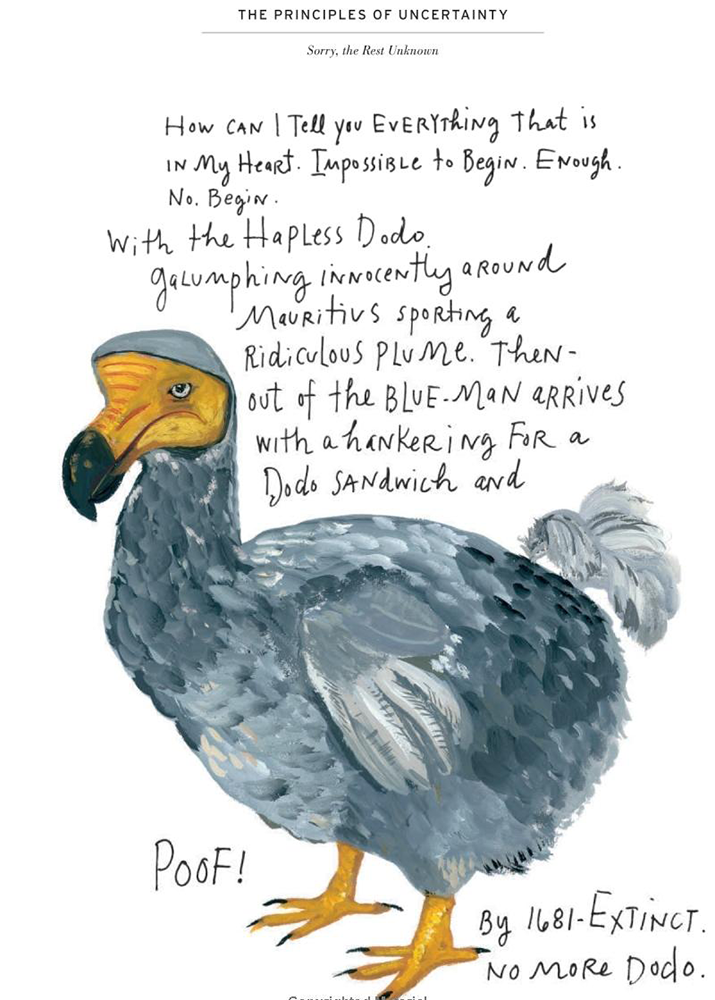 THE PRINCIPLES OF UNCERTAINTY
Sorry, the Rest Unknown
How CAN I Tell you EVERYThing That is
IN My Heart. Impossible to Begin. Enough.
No. Begin.
With the Hapless Dodo
galumphing innocently around
Mauritius sporting a
Ridiculous Plume. Then-
out of the BLUE-MAN ARRIVES
with a hankering For a
Dodo SANDwich and
PooF!
By 1681-EXTINCT.
No more Dodo.